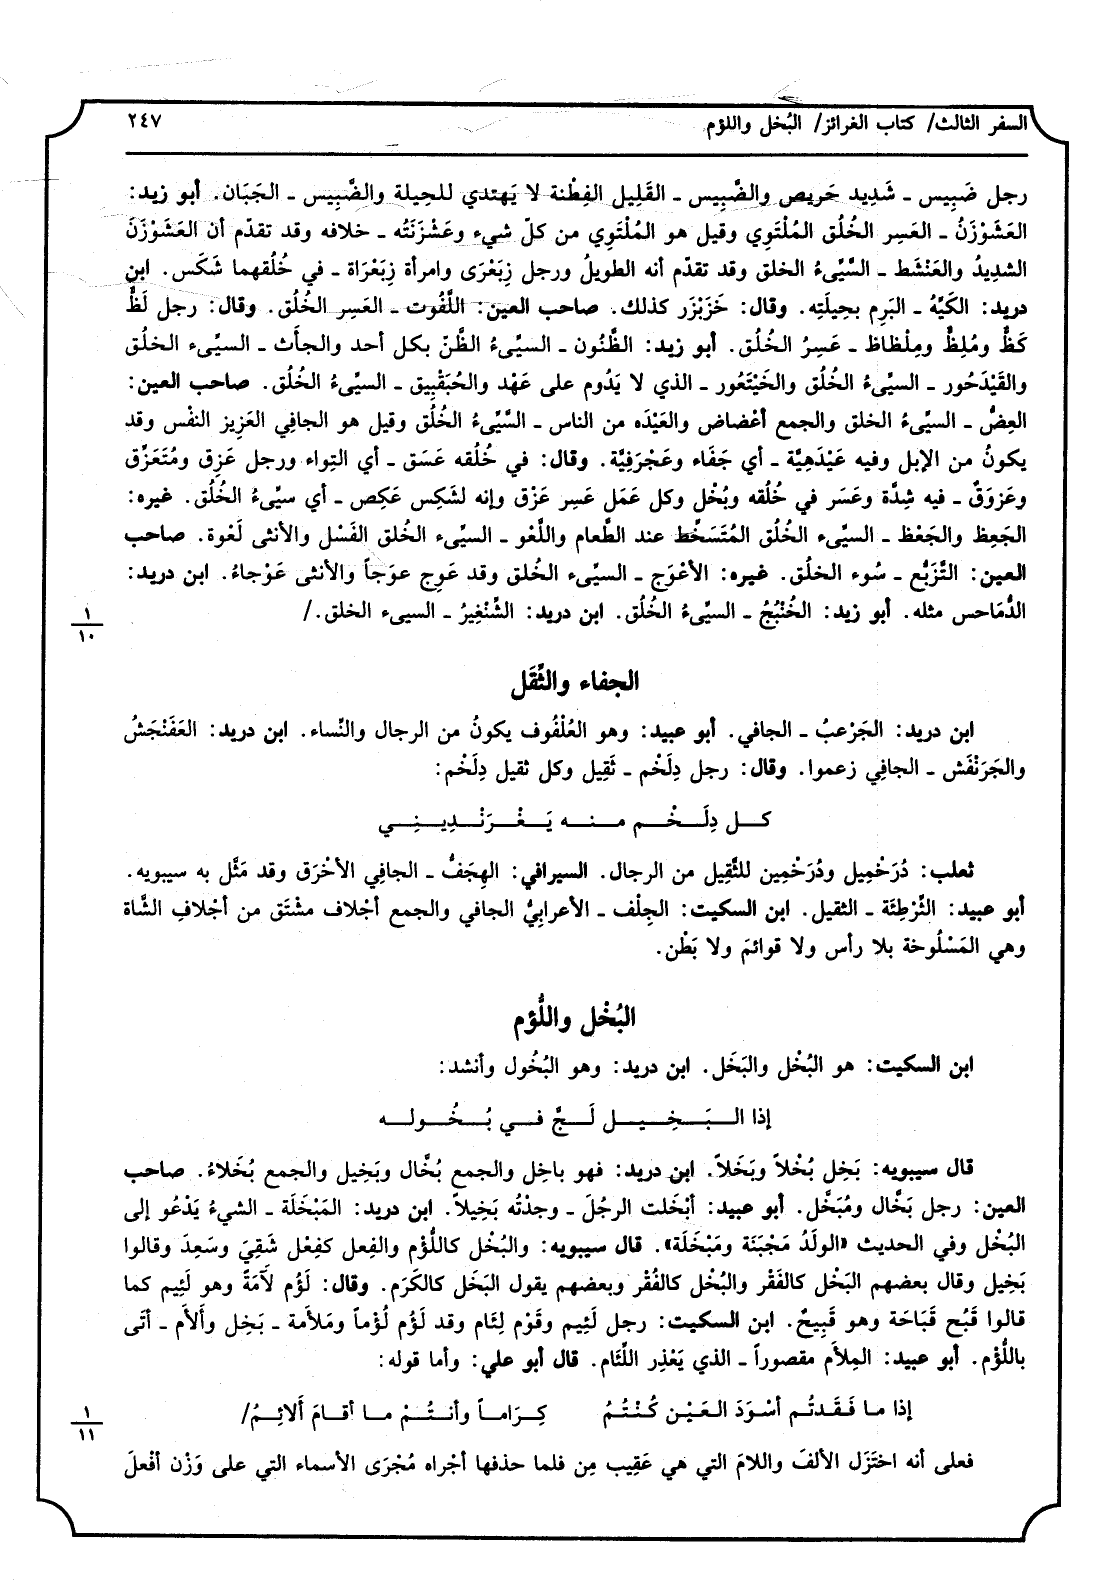 السفر الثالث/ كتاب الغرائز/ البُخل واللؤم
٢٤٧
رجل ضَبِيس ـ شَدِيد حَريص والضَّبِيس ـ القَلِيل الفِطْنة لا يَهتدي للحِيلة والضَّبِيس ـ الجَبَان. أبو زيد:
العَشَوْزَنُ ـ العَسِر الخُلُق المُلْتَوِي وقيل هو المُلْتَوِي من كلّ شيء وعَشْزَنَتُه ـ خلافه وقد تقدّم أن العَشَوْزَنَ
الشدِيدُ والعَنْشَط ـ السَّيِّىءُ الخلق وقد تقدّم أنه الطويلُ ورجل زِبَعْرَى وامرأة زِبَعْرَاة ـ في خُلُقهما شَكَس. ابن
دريد: الكَيِّهُ ـ البَرِم بحِيلَتِه. وقال: خَزَبْزَر كذلك. صاحب العين: اللَّفُوت ـ العَسِر الخُلُق. وقال: رجل لَظٌّ
كَظٌّ ومُلِظٌّ ومِلْظاظ ـ عَسِرُ الخُلُق. أبو زيد: الظَّنُون ـ السيِّىءُ الظَّنّ بكل أحد والجأَث ـ السيِّىء الخلق
والقَيْدَحُور ـ السيِّىءُ الخُلُق والخَيْتَعُور ـ الذي لا يَدُوم على عَهْد والحُبَقْبِيق ـ السيِّىءُ الخُلُق. صاحب العين:
العِضُّ ـ السيِّىءُ الخلق والجمع أعْضاض والعَيْدَه من الناس ـ السَّيِّىءُ الخُلُق وقيل هو الجافِي العَزِيز النفْس وقد
يكونُ من الإبل وفيه عَيْدَهِيَّة ـ أي جَفَاء وعَجْرَفِيَّة. وقال: في خُلُقه عَسَق ـ أي التِواء ورجل عَزِق ومُتَعَزِّق
وعَزوَقٌ ـ فيه شِدَّة وعَسَر في خُلُقه وبُخْل وكل عَمَل عَسِر عَزْق وإنه لشَكِس عَكِص ـ أي سيِّىءُ الخُلُق. غيره:
الجَعِظ والجَعْظ ـ السيِّىء الخُلُق المُتَسَخِّط عند الطَّعام واللَّعْو ـ السيِّىء الخُلق الفَسْل والأنثى لَعْوة. صاحب
العين: التَّزَبُّع ـ سُوء الخلُق. غيره: الأعْوَج ـ السيِّىء الخُلق وقد عَوِج عوَجاً والأنثى عَوْجاءُ. ابن دريد:
الدُّمَاحس مثله. أبو زيد: الخُنْبُجُ ـ السيِّىءُ الخُلُق. ابن دريد: الشِّنْغِيرُ ـ السيىء الخلق./
١
١٠
الجفاء والثِّقَل
ابن دريد: الجَرْعبُ ـ الجافي. أبو عبيد: وهو العُلْفُوف يكونُ من الرجال والنِّساء. ابن دريد: العَفَنْجَشُ
والجَرَنْفَش ـ الجافِي زعموا. وقال: رجل دِلَخْم ـ ثَقِيل وكل ثقيل دِلَخْم:
كـل دِلَـخْـم مـنـه يَـغْـرَنْـدِيـنِـي
ثعلب: دُرَخْمِيل ودُرَخْمِين للثَّقِيل من الرجال. السيرافي: الهِجَفُّ ـ الجافِي الأخْرَق وقد مَثَّل به سيبويه.
أبو عبيد: الثِّرْطِئَة ـ الثقيل. ابن السكيت: الجِلْف ـ الأعرابِيُّ الجافي والجمع أجْلاف مشْتَق من أجْلافِ الشَّاة
وهي المَسْلُوخة بلا رأس ولا قوائمَ ولا بَطْن.
البُخْل واللُّؤم
ابن السكيت: هو البُخْل والبَخَل. ابن دريد: وهو البُخُول وأنشد:
إذا الـبَـخِـيـل لَـجَّ فـي بُـخُـولـه
قال سيبويه: بَخِل بُخْلاً وبَخَلاً. ابن دريد: فهو باخِل والجمع بُخَّال وبَخِيل والجمع بُخَلاءُ. صاحب
العين: رجل بَخَّال ومُبَخَّل. أبو عبيد: أبْخَلت الرجُلَ ـ وجدْتُه بَخِيلاً. ابن دريد: المَبْخَلَة ـ الشيءُ يَدْعُو إلى
البُخْل وفي الحديث «الولَدُ مَجْبَنَة ومَبْخَلَة». قال سيبويه: والبُخْل كاللُّؤم والفِعل كفِعْل شَقِيَ وسَعِدَ وقالوا
بَخِيل وقال بعضهم البَخْل كالفَقْر والبُخْل كالفُقْر وبعضهم يقول البَخَل كالكَرَم. وقال: لَؤُم لَآمَةً وهو لَئِيم كما
قالوا قَبُح قَبَاحَة وهو قَبِيحٌ. ابن السكيت: رجل لَئِيم وقَوْم لِئَام وقد لَؤُم لُؤْماً ومَلأمة ـ بَخِل وأَلأم ـ أتَى
باللُّؤم. أبو عبيد: المِلأَم مقصوراً ـ الذي يَعْذِر اللِّئَام. قال أبو علي: وأما قوله:
إذا مـا فَـقَـدتُـم أسْوَدَ العَـيْـن كُـنْـتُـمُ كِـرَامـاً وأنـتُـمْ مـا أقـامَ ألائِـمُ/
١
١١
فعلى أنه اختَزَل الألفَ واللامَ التي هي عَقِيب مِن فلما حذفها أجْراه مُجْرَى الأسماء التي على وَزْن أفْعلَ